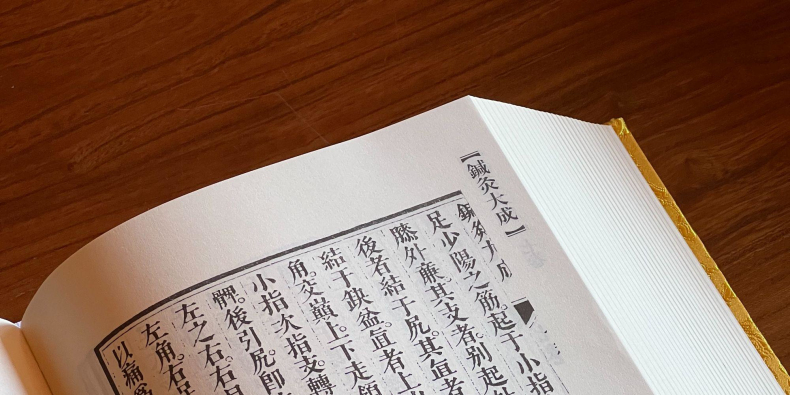 【鍼灸大成】
足少陽之筋起于小指
膝外廉其支者别起
後者結于尻。其直者上
結于缺盆。直者上
角。交巔上。下走頷
小指次指支轉
髀。後引尻。卽
左之右。右目
左角。右足
以痛爲